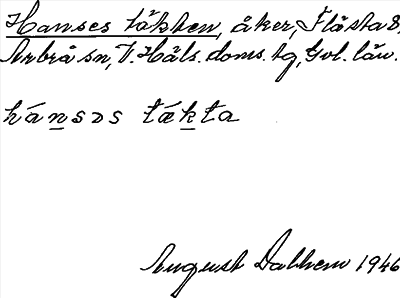 Hanses täkten, åker, Flästa 8,
Arbrå sn, V. Häls. doms. tg, Gvl. län.
hánsɔs tǽkta
August Dalhem 1946